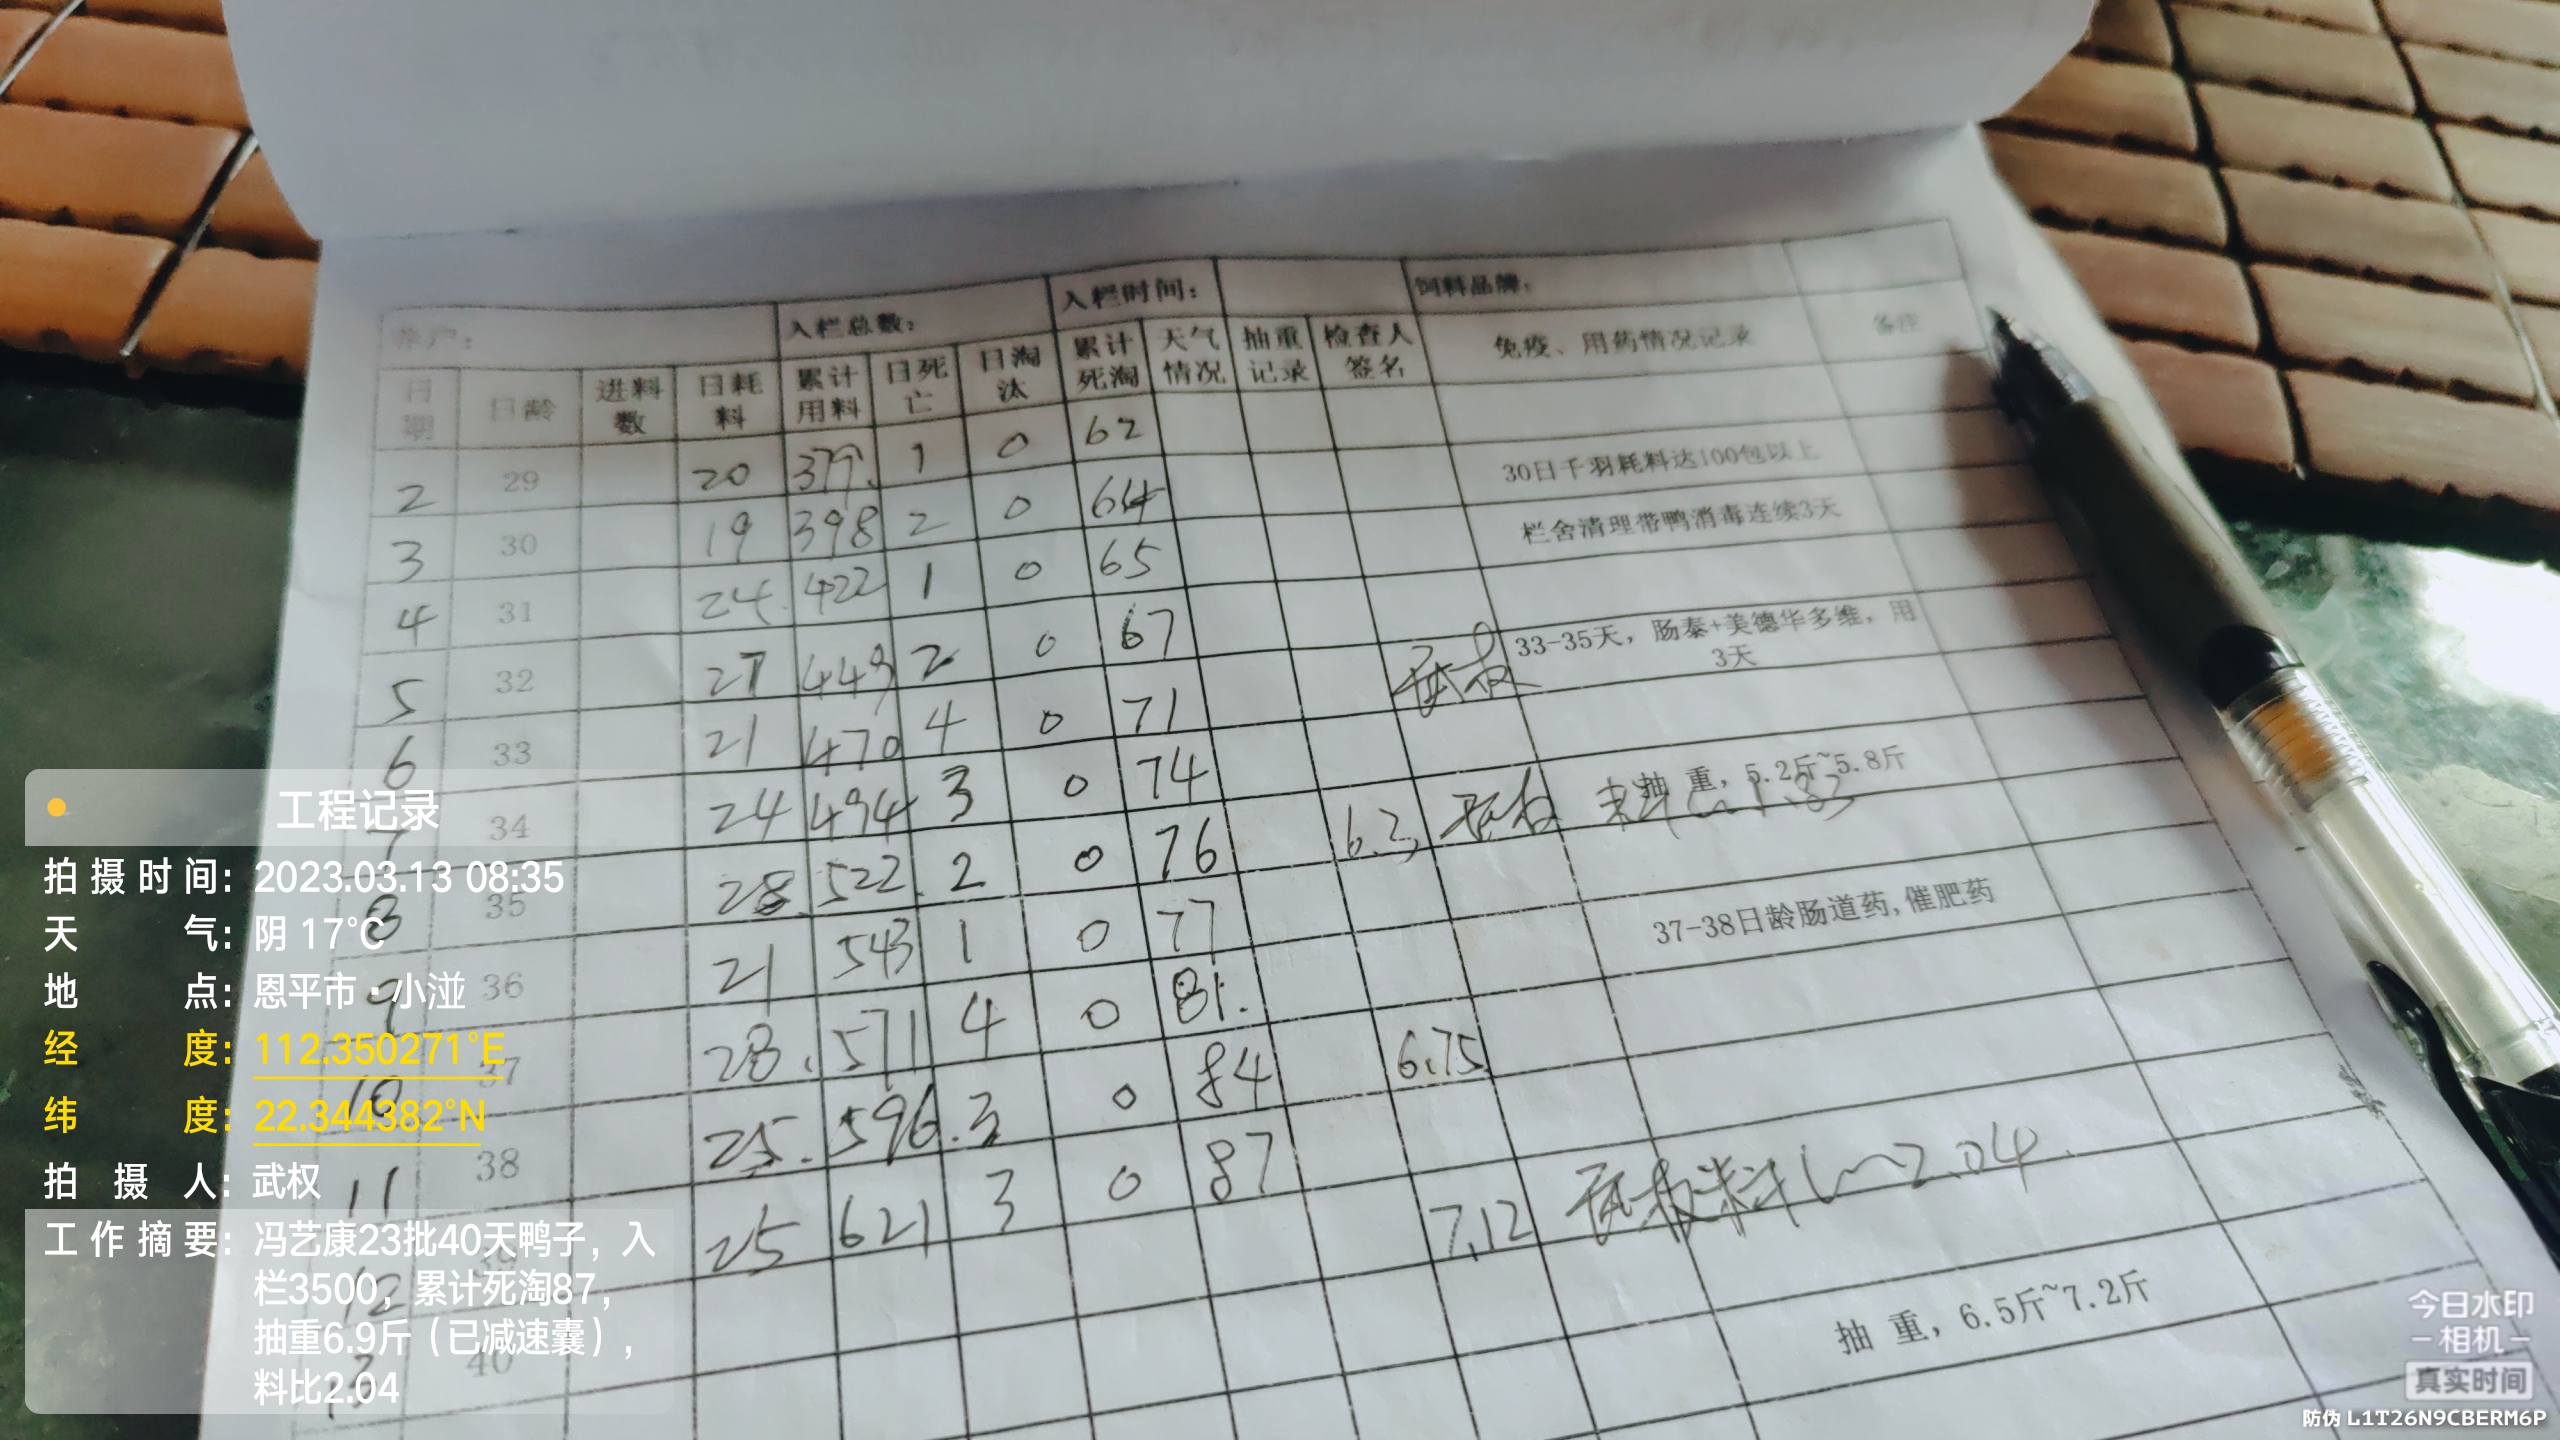 养户： 入栏总数： 入栏时间： 饲料品牌：
日期 日龄 进料数 日耗料 累计用料 日死亡 日淘汰 累计死淘 天气情况 抽重记录 检查人签名 免疫、用药情况记录 备注
2 29 20 379. 1 0 62
3 30 19 398 2 0 64 30日千羽耗料达100包以上
4 31 24. 422 1 0 65 栏舍清理带鸭消毒连续3天
5 32 27 449 2 0 67
6 33 21 470 4 0 71 武权 33-35天，肠泰+美德华多维，用3天
7 34 24 494 3 0 74
8 35 28. 522. 2 0 76 6.3 武权 抽 重，5.2斤~5.8斤 料比1.83
9 36 21 543 1 0 77
10 37 28. 571 4 0 81. 37-38日龄肠道药,催肥药
11 38 25. 596. 3 0 84 6.75
12 39 25 621 3 0 87 7.12 武权 料比2.04
13 40 抽 重，6.5斤~7.2斤
工程记录
拍摄时间：2023.03.13 08:35
天气：阴 17℃
地点：恩平市·小湴
经度：112.350271°E
纬度：22.344382°N
拍摄人：武权
工作摘要：冯艺康23批40天鸭子，入
栏3500，累计死淘87，
抽重6.9斤（已减速囊），
料比2.04
今日水印
-相机-
真实时间
防伪 L1T26N9CBERM6P